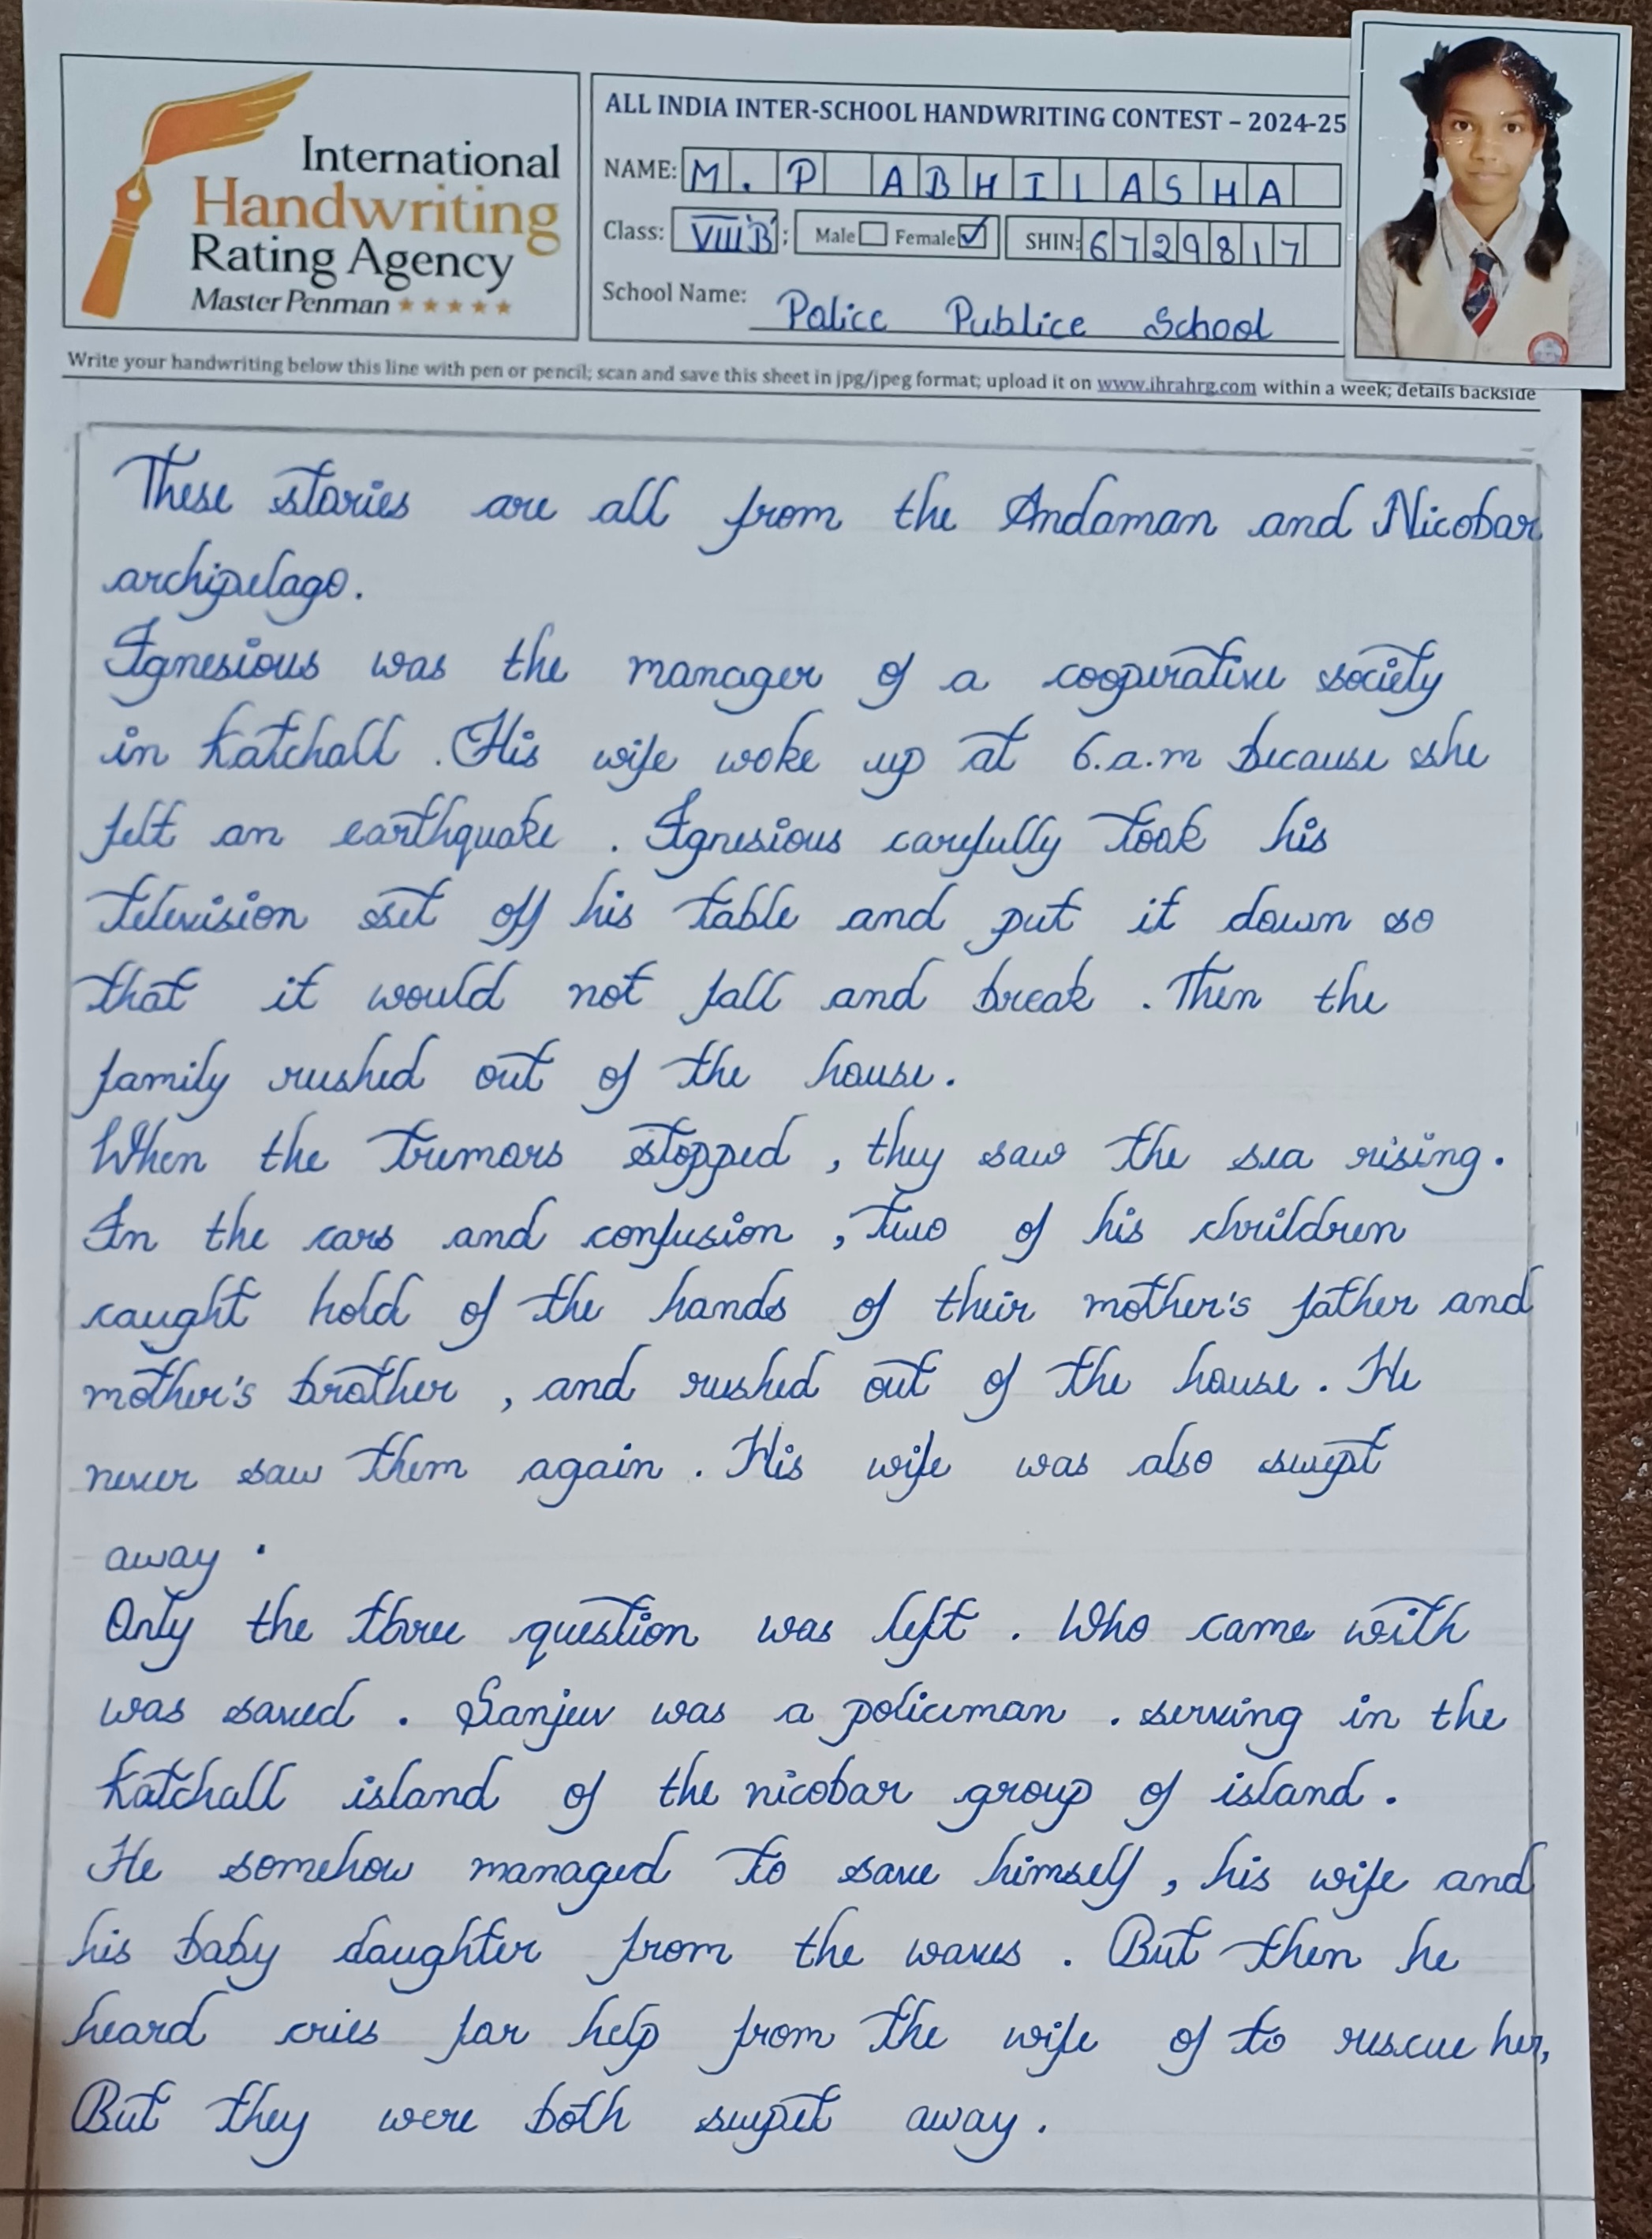 International
Handwriting
Rating Agency
Master Penman
ALL INDIA INTER-SCHOOL HANDWRITING CONTEST – 2024-25
NAME: M. P ABHILASHA
Class: VIII 'B'; Male Female ✓ SHIN: 6729817
School Name: Police Publice School
Write your handwriting below this line with pen or pencil; scan and save this sheet in jpg/jpeg format; upload it on www.ihrahrg.com within a week; details backside
These stories are all from the Andaman and Nicobar
archipelago.
Ignesious was the manager of a cooperative society
in Katchall . His wife woke up at 6.a.m because she
felt an earthquake . Ignesious carefully took his
television set off his table and put it down so
that it would not fall and break . Then the
family rushed out of the house.
When the tremors stopped , they saw the sea rising.
In the cars and confusion , two of his children
caught hold of the hands of their mother's father and
mother's brother , and rushed out of the house . He
never saw them again . His wife was also swept
away .
Only the three question was left . Who came with
was saved . Sanjeev was a policeman . serving in the
Katchall island of the nicobar group of island .
He somehow managed to save himself , his wife and
his baby daughter from the waves . But then he
heard cries for help from the wife of to rescue her,
But they were both swept away .